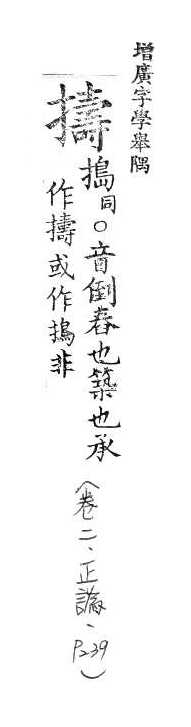 增廣字學舉隅
擣
搗同○音倒舂也築也承
作擣或作搗非
(卷二、正譌、P239)